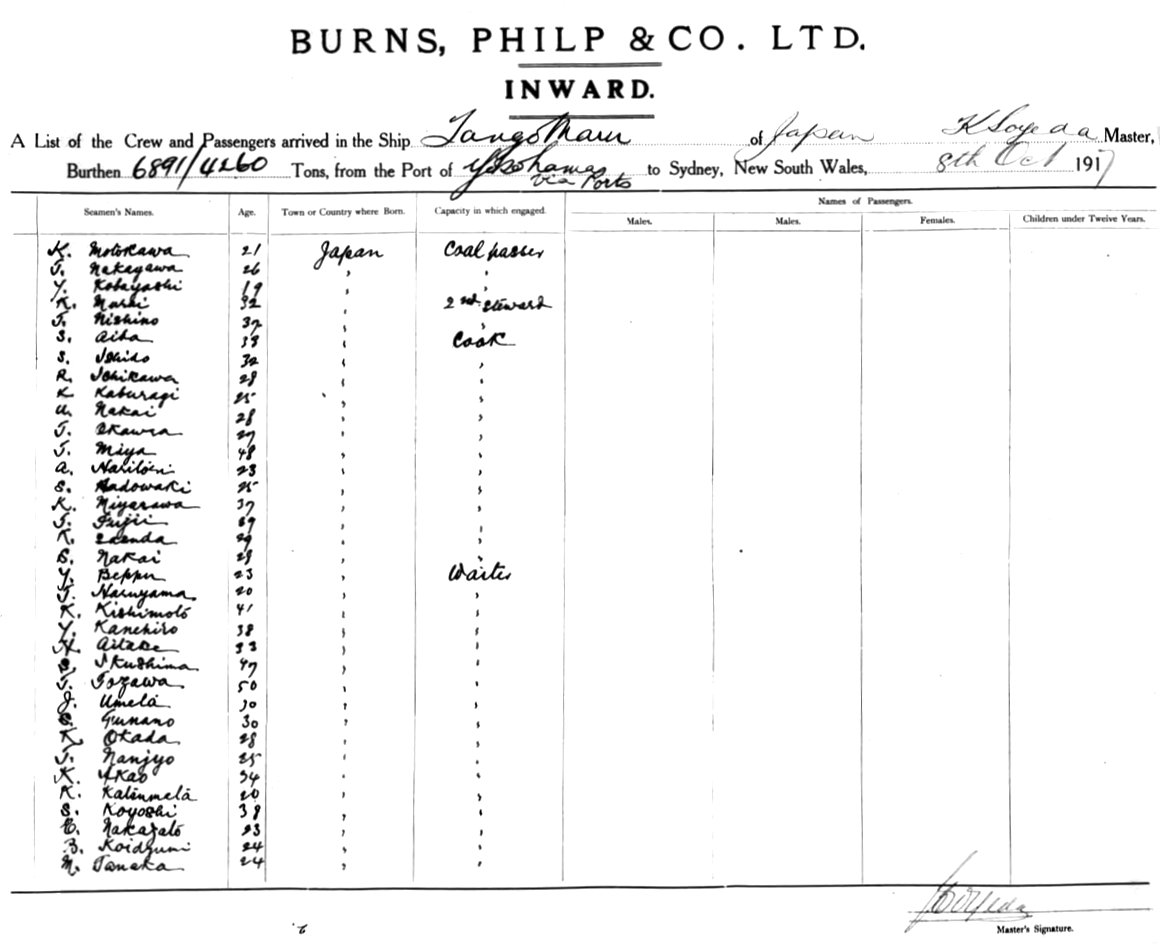 BURNS, PHILP & CO. LTD.
INWARD.
A List of the Crew and Passengers arrived in the Ship Tango Maru of Japan K Soyeda Master,
Burthen 6891/4260 Tons, from the Port of Yokohama via Ports to Sydney, New South Wales, 8th Oct 1917
Seamen's Names. Age. Town or Country where Born. Capacity in which engaged. Names of Passengers.
Males. Males. Females. Children under Twelve Years.
K. Motokawa 21 Japan Coal passer
T. Nakagawa 26 " "
Y. Kobayashi 19 " "
K. 32 " 2nd Steward
T. Nishino 32 " "
S. Aiba 38 " Cook
S. Ishido 32 " "
R. Ichikawa 28 " "
K Kaburagi 25 " "
U. Nakai 28 " "
T. Okawra 27 " "
T. Miya 48 " "
A. 23 " "
S. Kadowaki 25 " "
K. 37 " "
T. Fujii 39 " "
K. 29 " "
S. Nakai 28 " "
Y. Beppu 23 " Waiter
T. Haruyama 20 " "
K. Kishimoto 41 " "
Y. Kanehiro 38 " "
H. Aitake 33 " "
S. Ikushima 47 " "
T. Tozawa 50 " "
J. Umeta 30 " "
S. 30 " "
K. Okada 28 " "
T. Nanjyo 25 " "
K. 34 " "
K. Katsumata 20 " "
S. Koyoshi 38 " "
Nakazato 23 " "
B. Koidzumi 24 " "
M. Tanaka 24 " "
K Soyeda
Master's Signature.